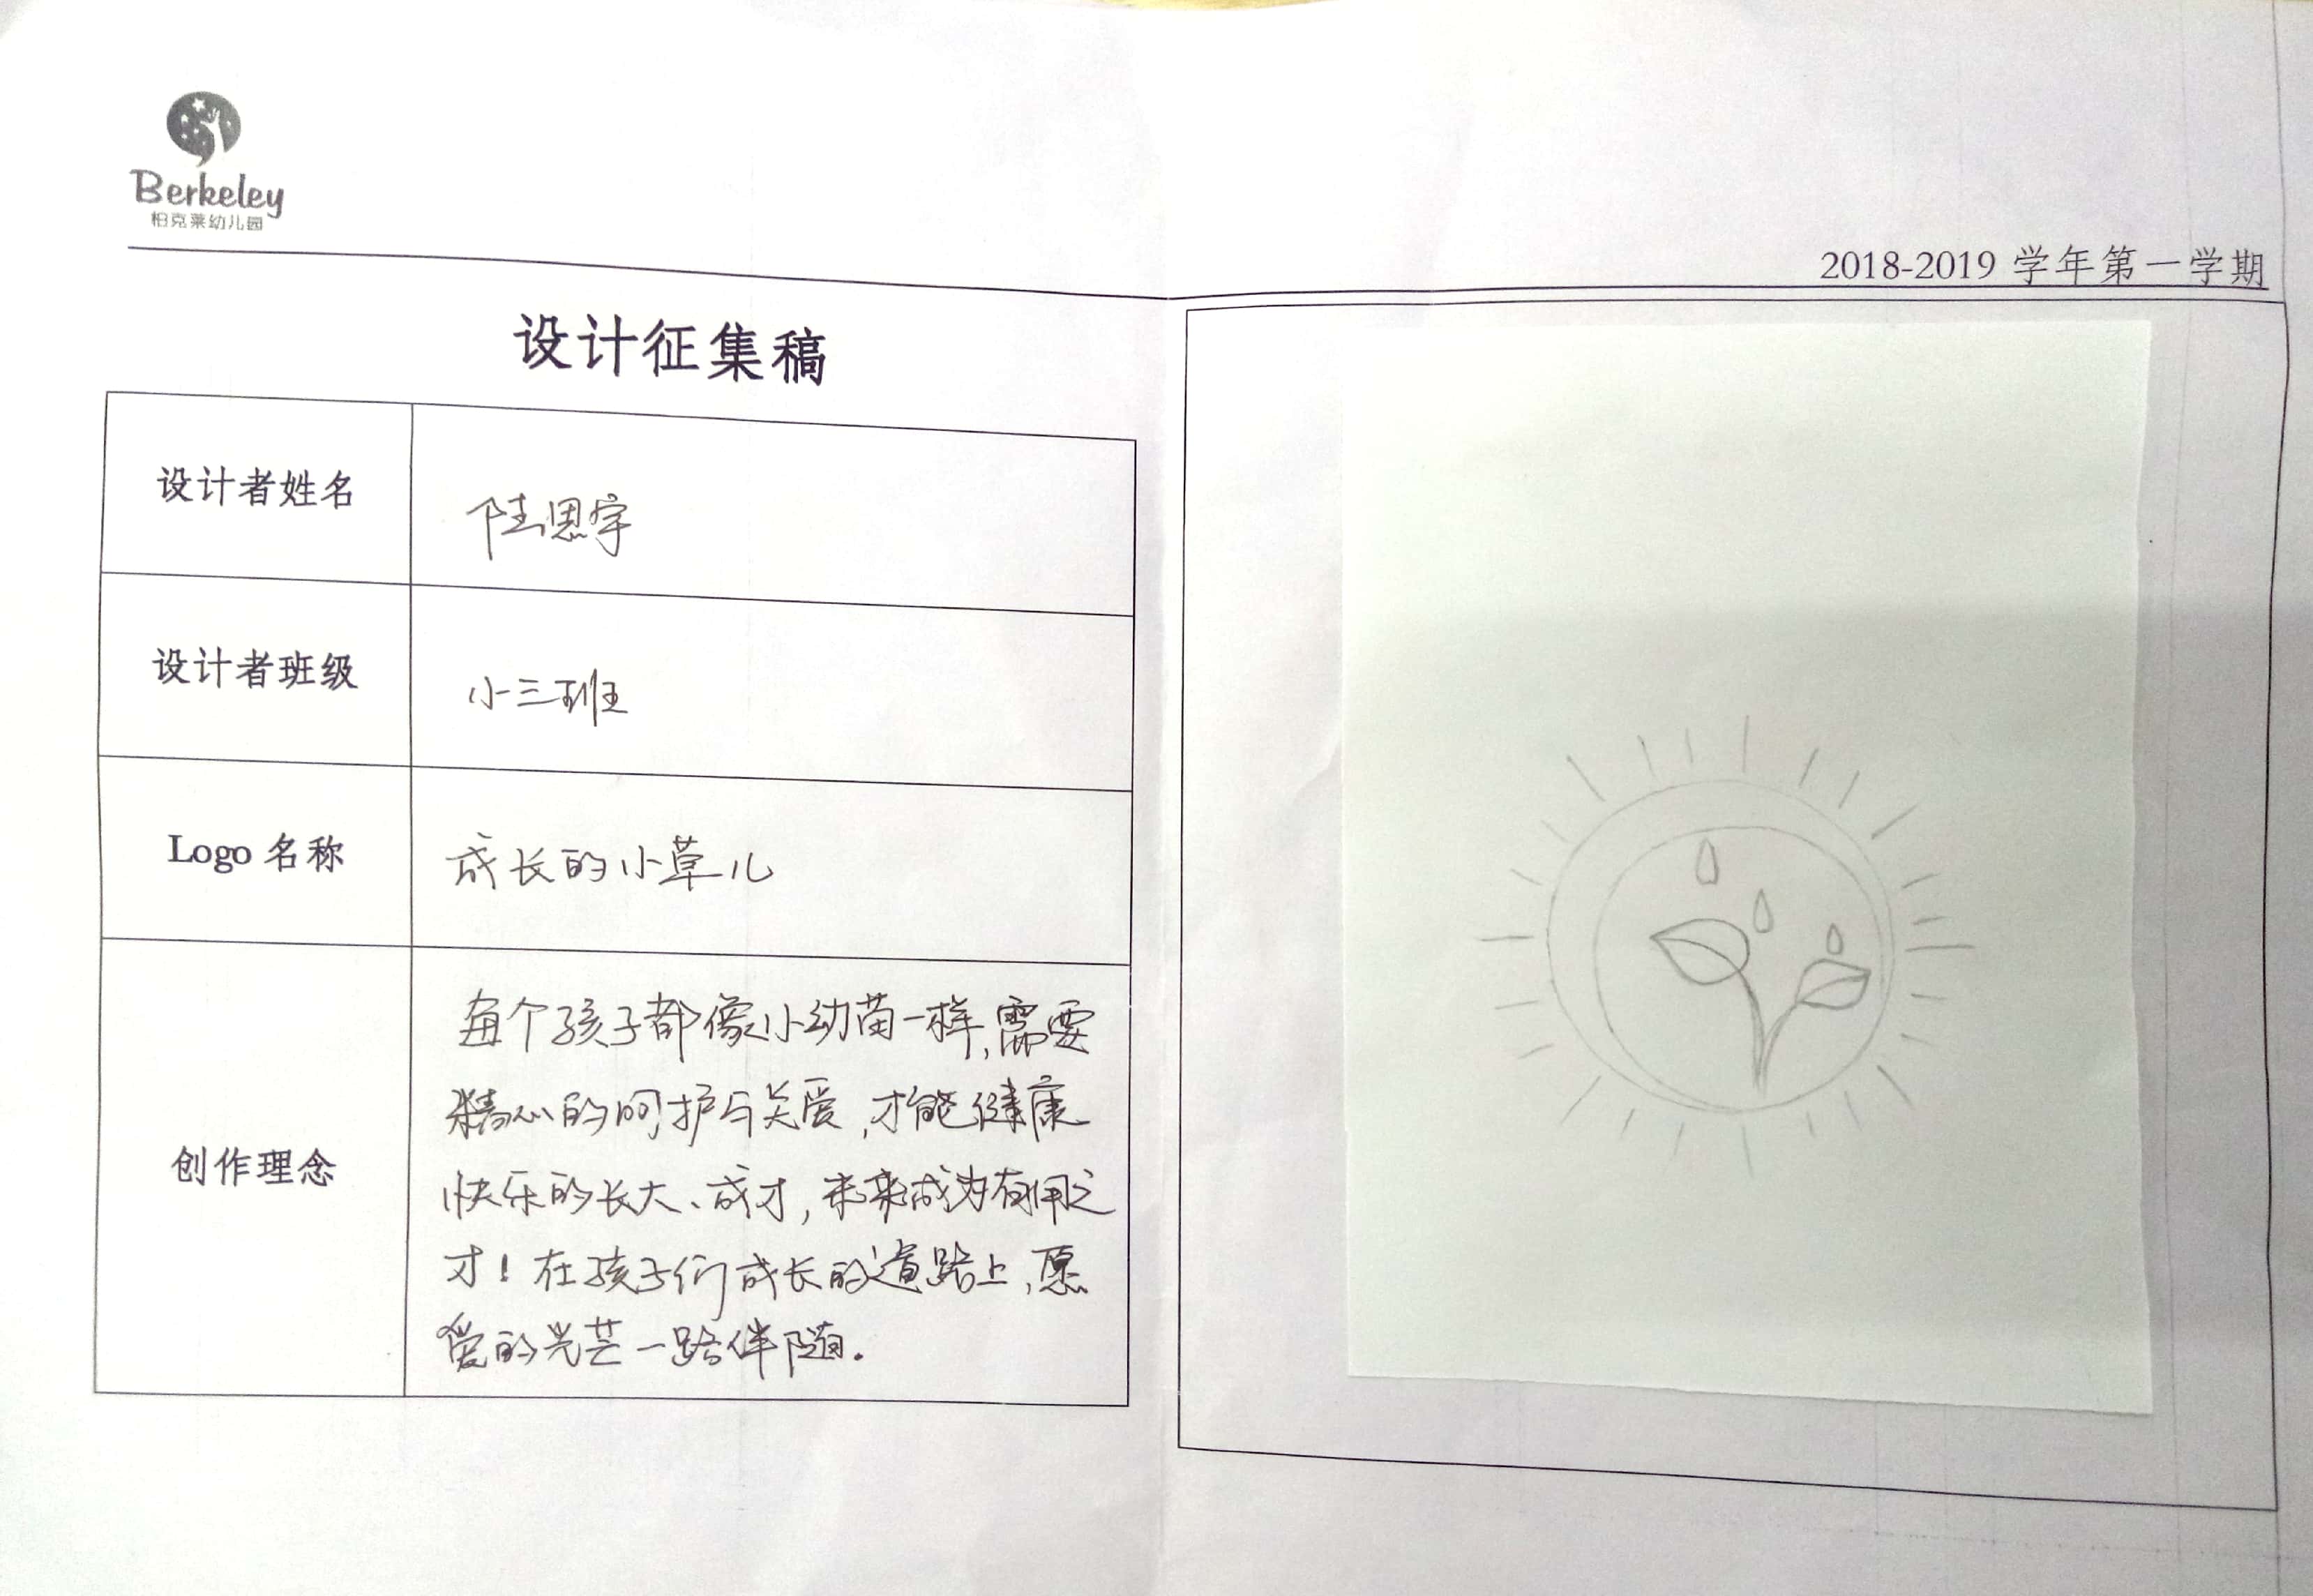 Berkeley
柏克莱幼儿园
2018-2019 学年第一学期
设计征集稿
设计者姓名
陆思宇
设计者班级
小三班
Logo 名称
成长的小草儿
创作理念
每个孩子都像小幼苗一样,需要
精心的呵护与关爱,才能健康
快乐的长大、成才,未来成为有用之
才!在孩子们成长的道路上,愿
爱的光芒一路伴随.